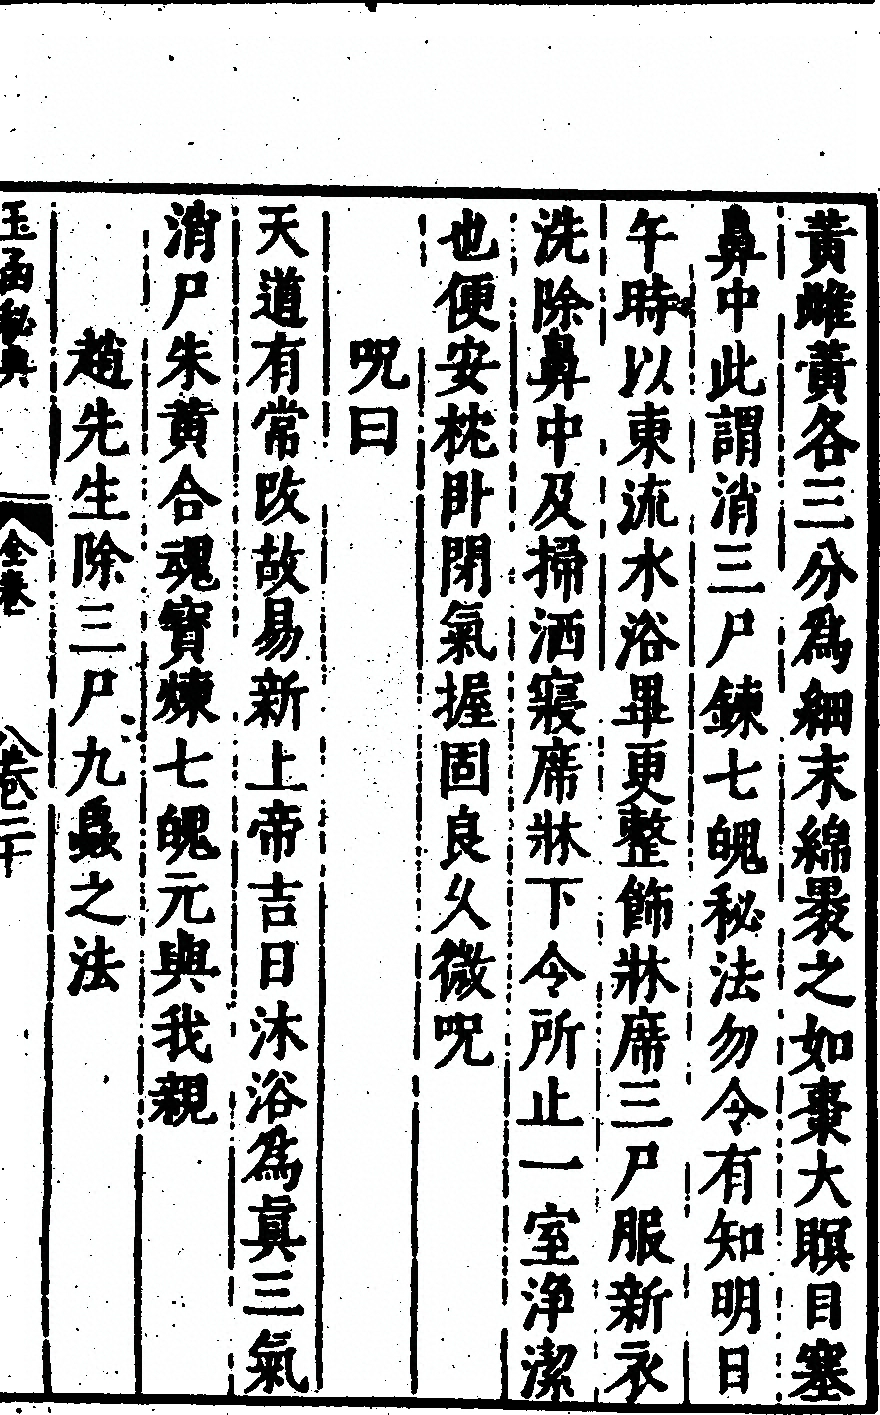 黃雌黃各三分爲細末綿褁之如棗大瞑目塞
鼻中此謂消三尸鍊七魄秘法勿令有知明日
午時以東流水浴畢更整飾牀席三尸服新衣
洗除鼻中及掃洒寢席牀下令所止一室浄潔
也便安枕卧閉氣握固良久微呪
呪曰
天道有常改故易新上帝吉日沐浴爲眞三氣
消尸朱黄合魂寳煉七魄元與我親
趙先生除三尸九蟲之法
玉函秘典
全卷
八卷二十